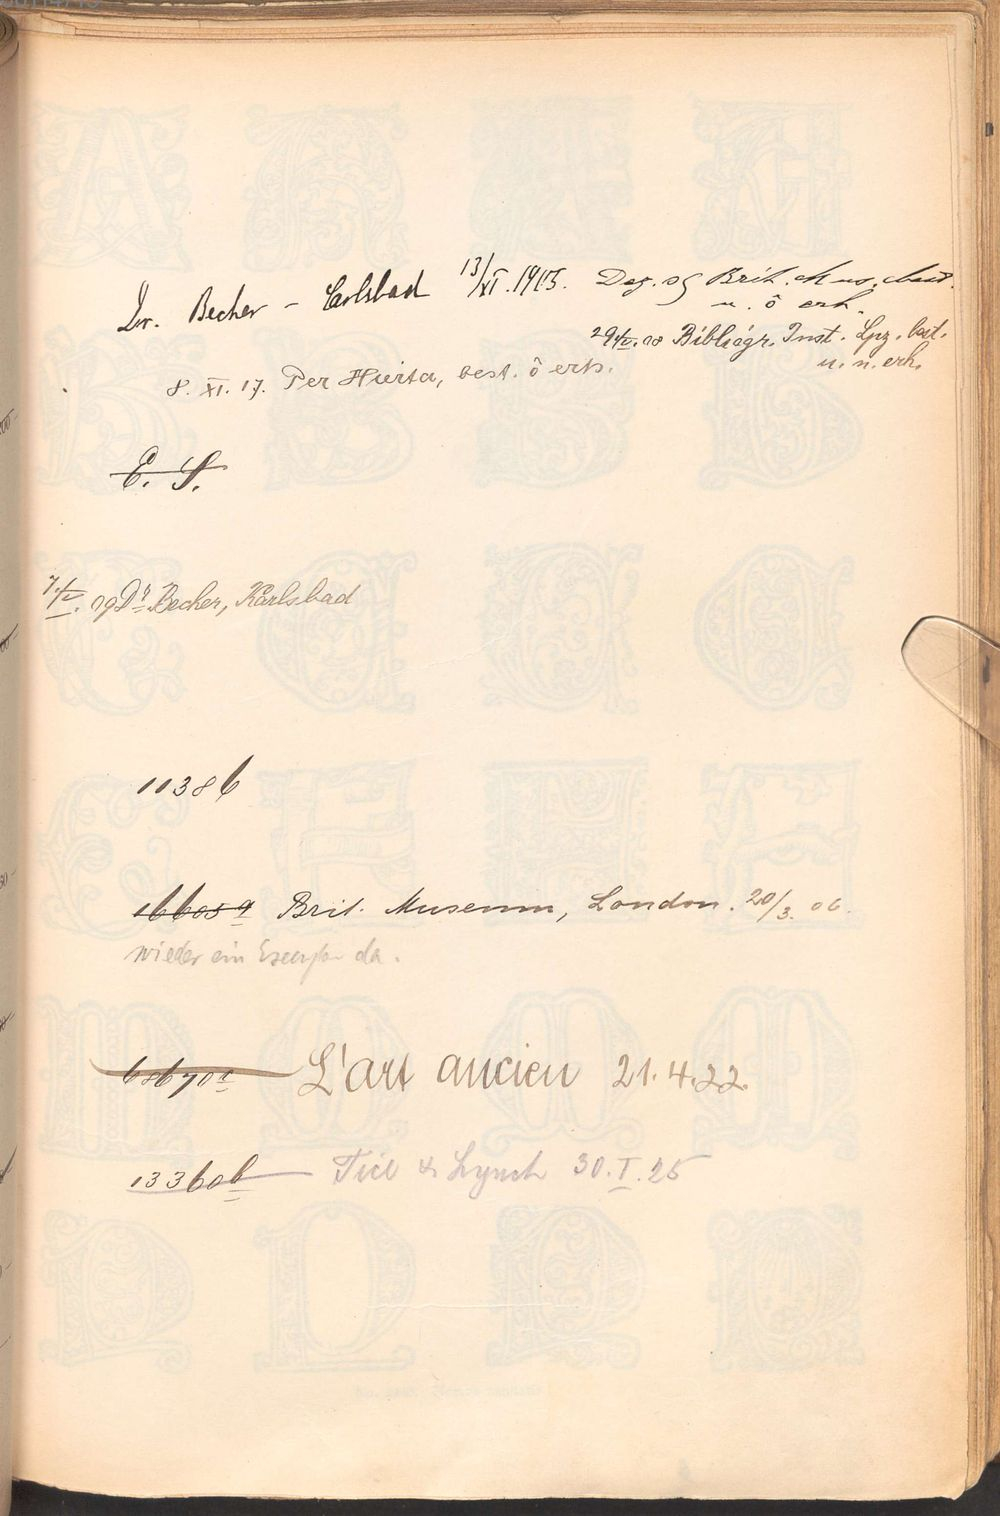 Dr. Becher - Carlsbad 13/XI. 1913. Dez. 09 Brit. Mus. best.
u. ô erh.
29/IV. 18 Bibliogr. Inst. Lpz. best.
u. n. erh.
8. XI. 17. Per Hierta, best. ô erh.
E. S.
7/V. 09 Dr Becher, Karlsbad
11386
16605a Brit. Museum, London. 20/3. 06.
wieder ein Exemplar da.
68670c L'art ancien 21.4.22.
13360b Tice & Lynch 30.I.25